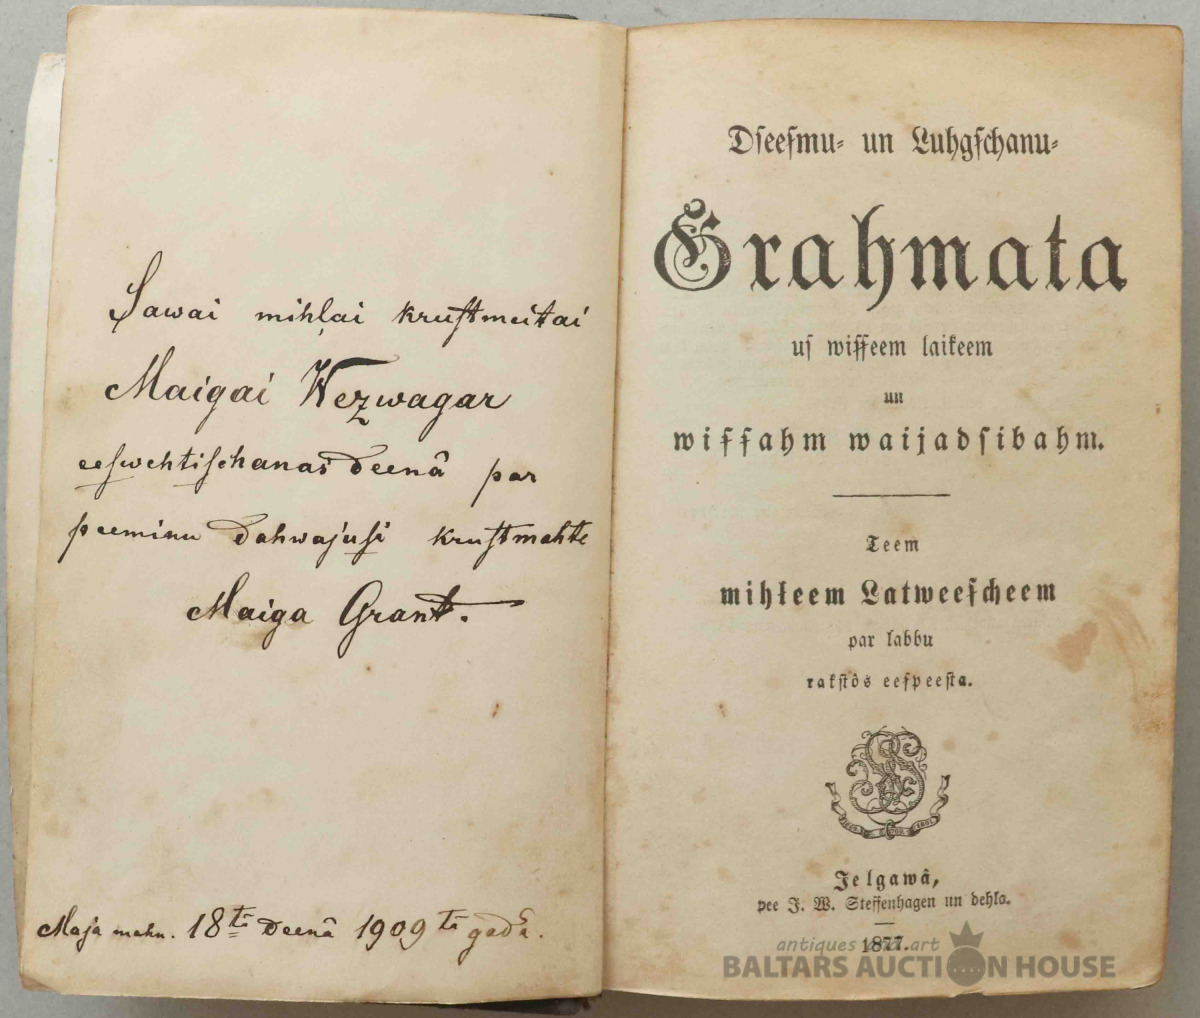 Sawai mihļai kruſtmeitai
Maigai Wezwagar
eeſwehtiſchanas deenâ par
peeminu dahwajuſi kruſtmahte
Maiga Grant.
Maja mehn. 18tâ deenâ 1909tâ gadâ.
Dſeeſmu- un Luhgſchanu-
Grahmata
uſ wiſſeem laikeem
un
wiſſahm waijadſibahm.
Teem
mihłeem Latweeſcheem
par labbu
rakſtôs eeſpeeſta.
Jelgawâ,
pee J. W. Steffenhagen un dehla.
1877.
antiques and art
BALTARS AUCTION HOUSE